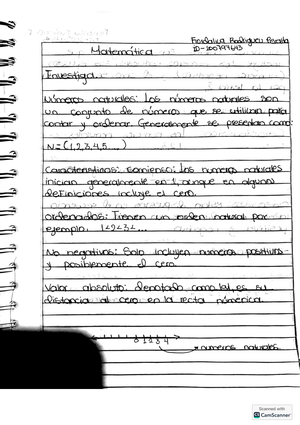 Matemática
Investiga
Números naturales: Los números naturales son
un conjunto de números que se utilizan para
contar y ordenar. Generalmente se presentan como:
N=(1,2,3,4,5...)
Características: Comienso: Los numeros naturales
inician generalmente en 1, aunque en algunas
definiciones incluye el cero.
Ordenados: Tienen un orden natural por
ejemplo, 1<2<3<...
No negativos: Solo incluyen numeros positivos
y posiblemente el cero
Valor absoluto: denotado como |a|, es su
distancia al cero en la recta númerica.
0 1 2 3 4
numeros naturales
Scanned with
CS CamScanner